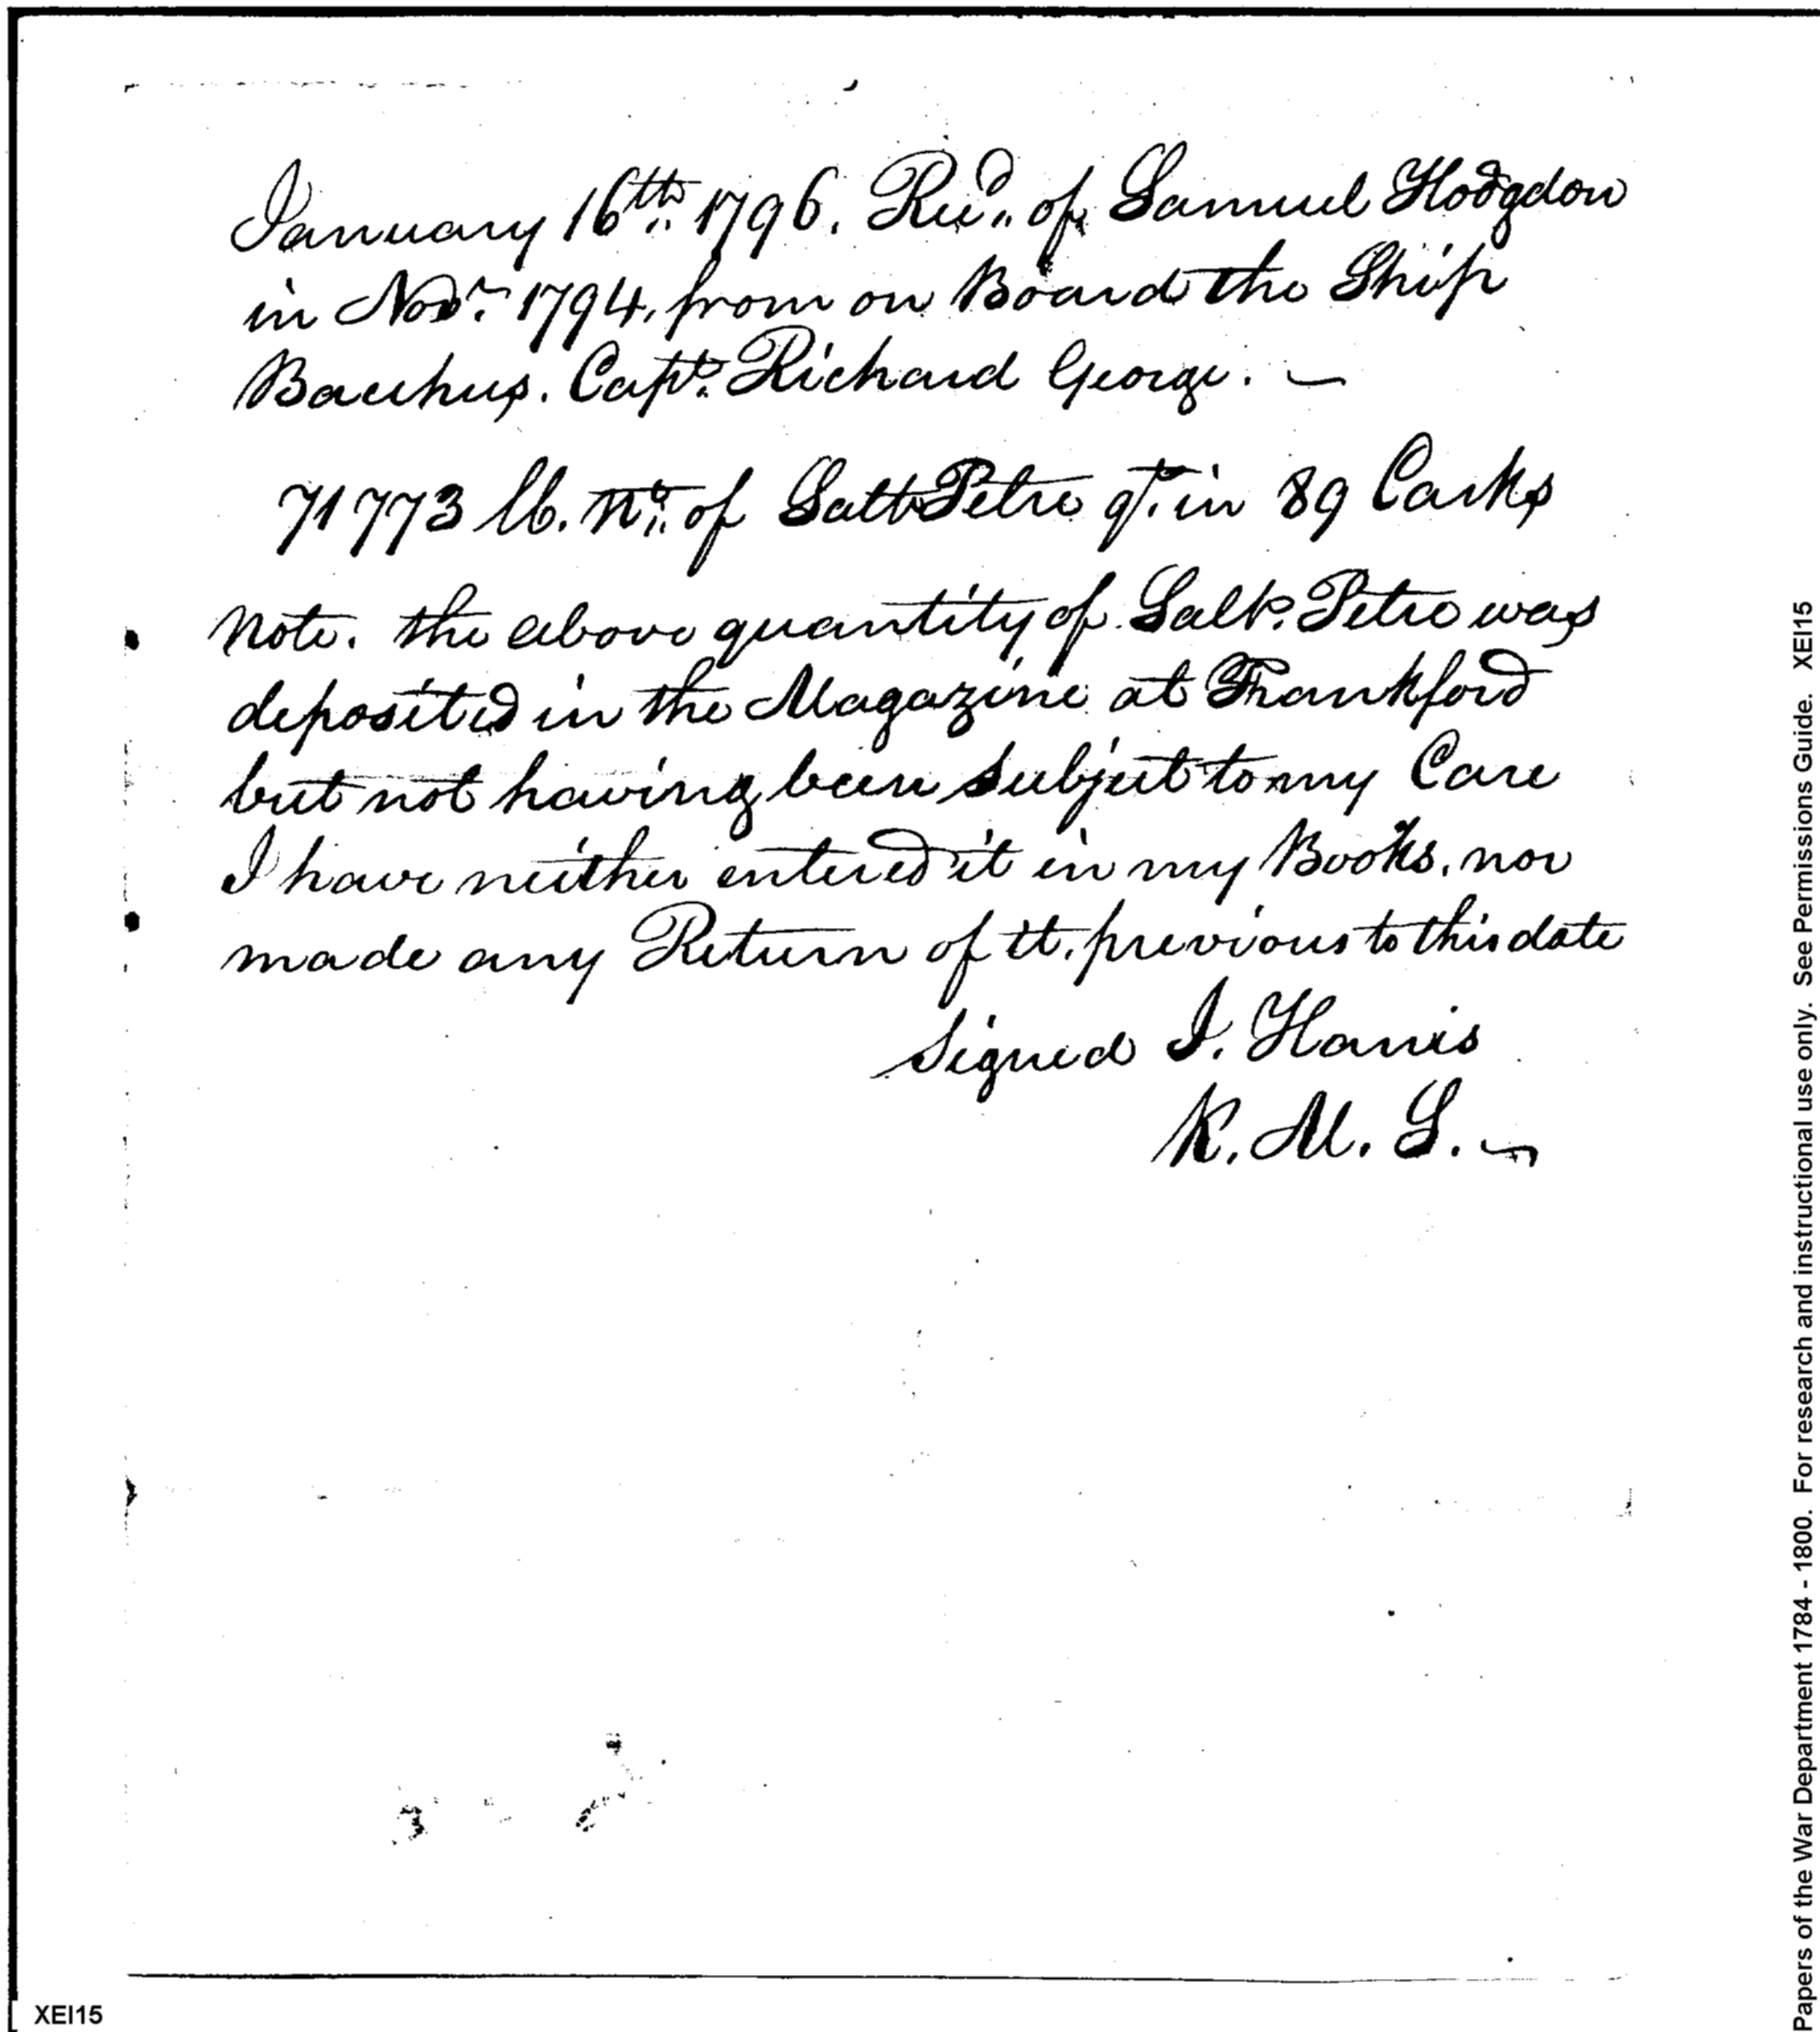 January 16th. 1796. Recd. of Samuel Hodgdon
in Novr. 1794, from on Board the Ship
Bacchus. Capt. Richard George. —
71773 lb. Nt. of Salt Petre qt. in 89 Casks
Note. the above quantity of Salt. Petre was
deposited in the Magazine at Frankford
but not having been subject to my Care
I have neither entered it in my Books, nor
made any Return of it. previous to this date
Signed J. Harris
K. M. S. —
XEI15
Papers of the War Department 1784 - 1800. For research and instructional use only. See Permissions Guide. XEI15